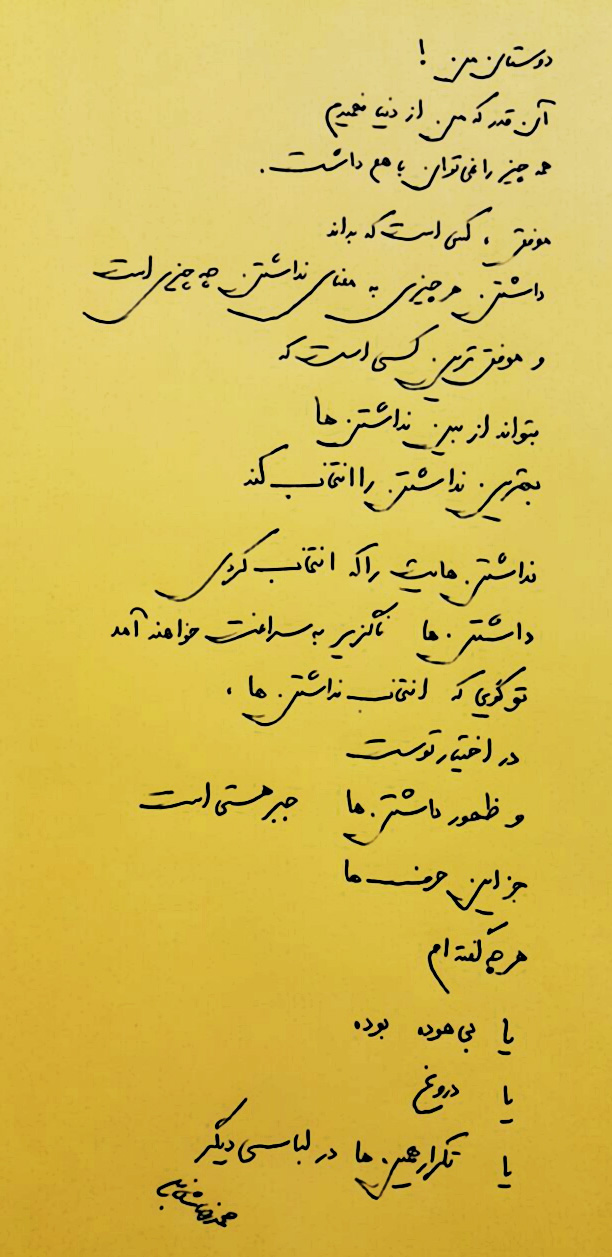 دوستان من !
آن قدر که من از دنیا فهمیدم
همه چیز را نمی توان با هم داشت .
موفق ، کسی است که بداند
داشتن هر چیزی به معنای نداشتن چه چیزی است
و موفق ترین کسی است که
بتواند از بین نداشتن ها
بهترین نداشتن را انتخاب کند
نداشتن هایت را که انتخاب کردی
داشتن ها ناگزیر به سراغت خواهند آمد
تو گویی که انتخاب نداشتن ها ،
در اختیار توست
و ظهور داشتن ها جبر هستی است
جز این حرف ها
هر چه گفته ام
یا بی هوده بوده
یا دروغ
یا تکرار همین ها در لباسی دیگر
محمدرضا شعبانعلی